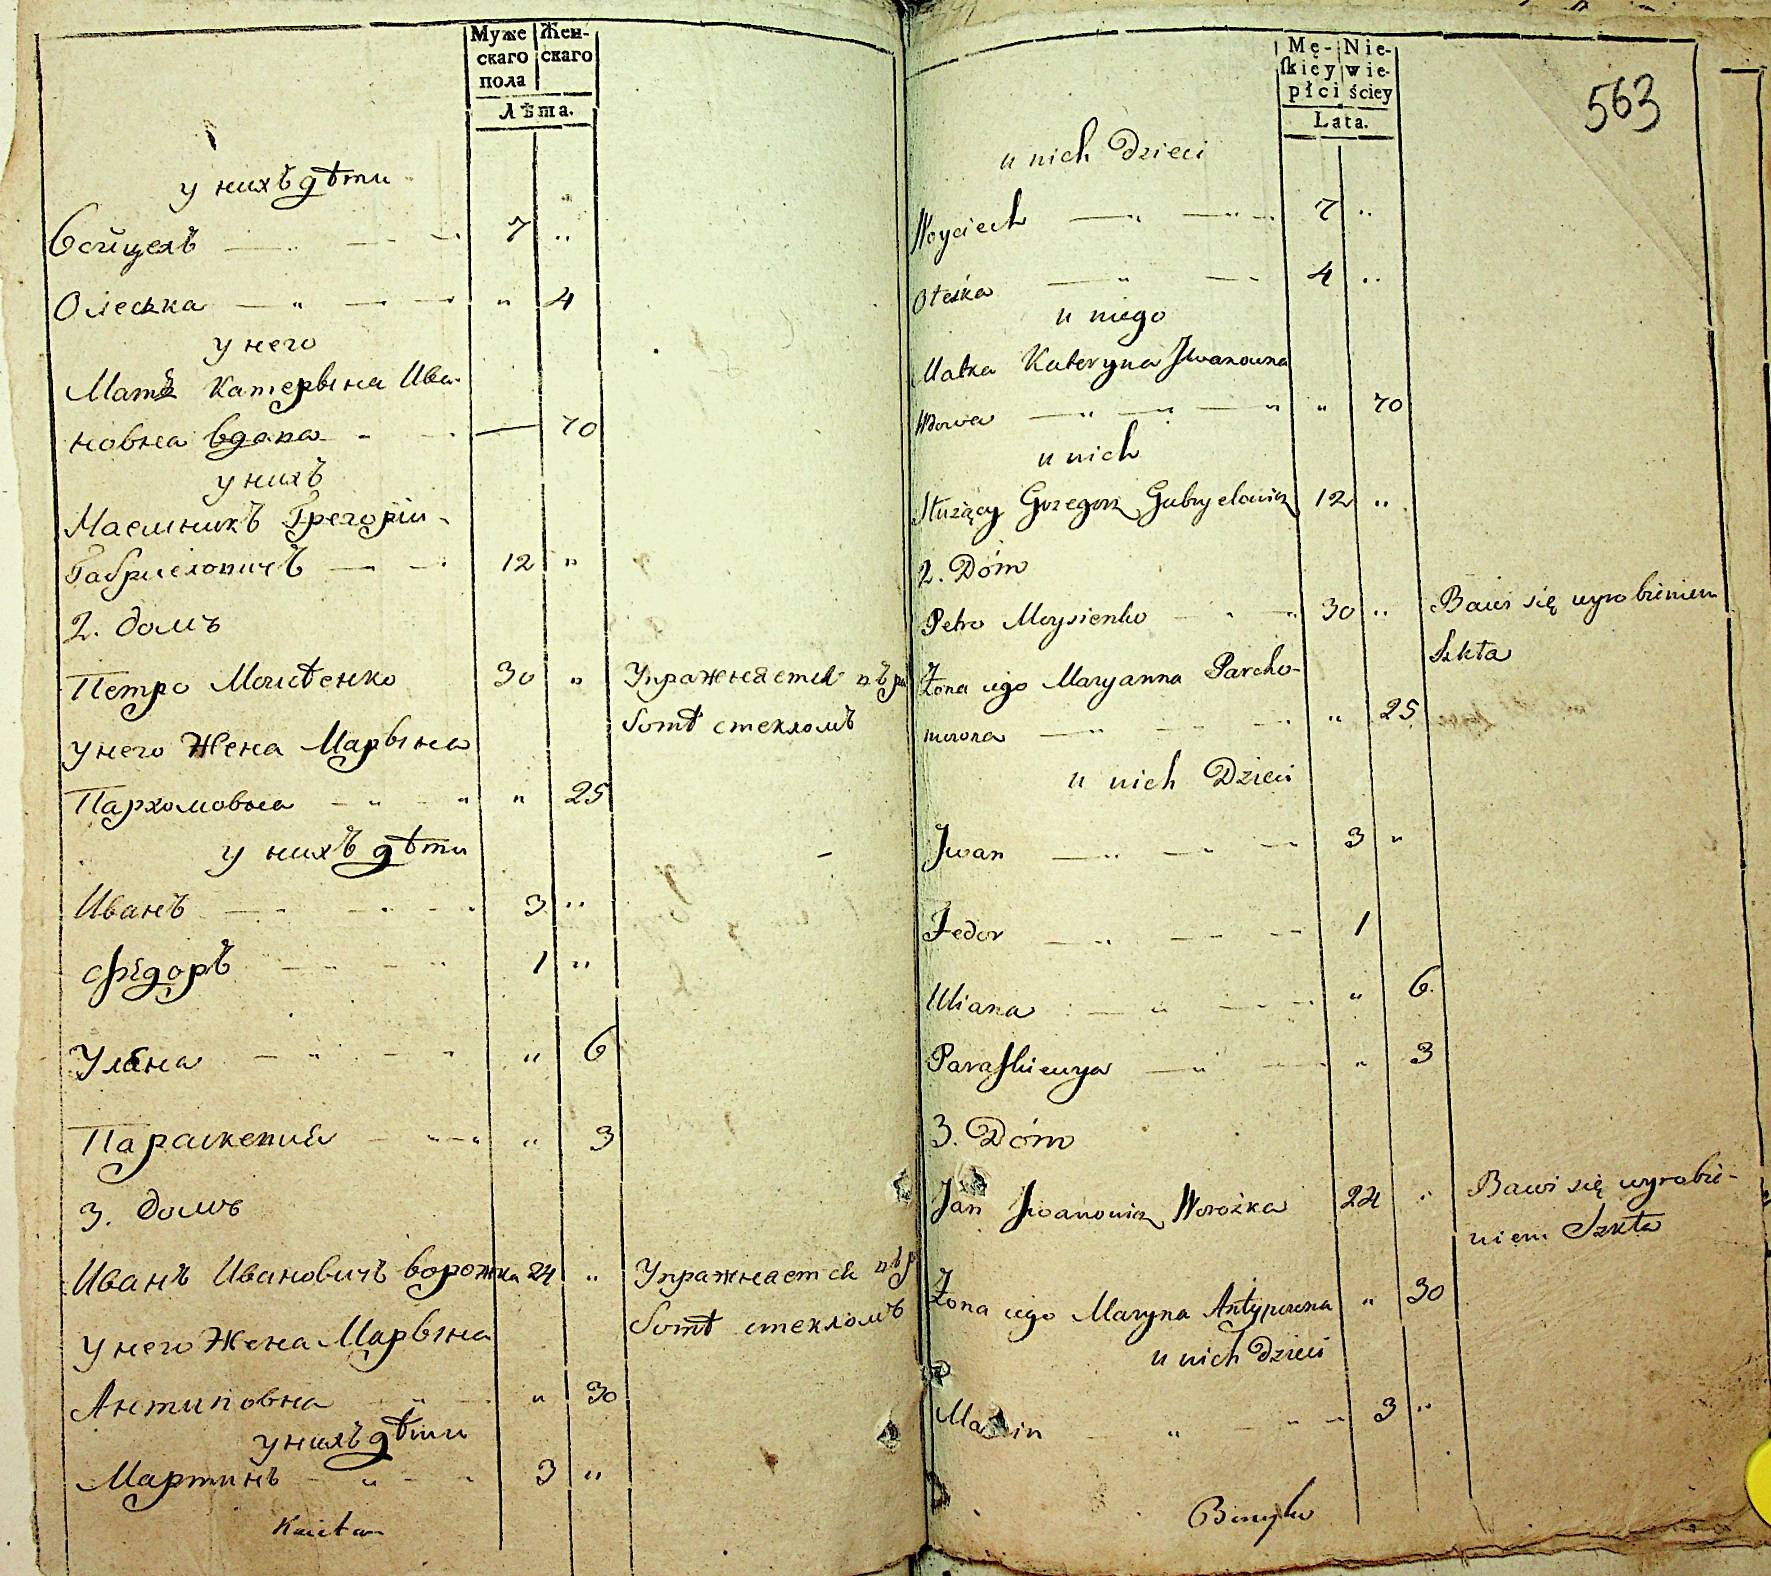 Муже Жен-
скаго скаго
пола
Лѣта.
у нихъ дѣти
Войцехъ 7 "
Олеська " 4
у него
Мать Катерына Ива-
новна вдова — 70
у нихъ
Наемникъ Грегорій
Габриеловичъ 12 "
2. домъ
Петро Моисѣенко 30 " Упражняется въ ра
у него Жена Марына ботѣ стекломъ
Пархомовна " 25
у нихъ дѣти
Иванъ 3 "
Фёдоръ 1 "
Уляна " 6
Параскевия " 3
3. домъ
Иванъ Ивановичъ Ворожка 24 " Упражняется въ р
у него Жена Марына ботѣ стекломъ
Антиповна " 30
у нихъ дѣти
Мартинъ 3 "
563
Mę- Nie-
ſkiey wie-
płci ściey
Lata.
u nich Dzieci
Woyciech 7 "
Oleśka 4 "
u niego
Matka Kateryna Jwanowna
Wdowa " 70
u nich
Służący Grzegorz Gabryelowicz 12 "
2. Dóm
Petro Moysienko 30 " Bawi się wyrobieniem
Żona iego Maryanna Parcho- Szkła
mowna " 25
u nich Dzieci
Jwan 3 "
Fedor 1
Uliana " 6.
Paraſkiewya " 3
3. Dóm
Jan Jwanowicz Worożka 24 " Bawi się wyrobie-
niem Szkła
Żona iego Maryna Antypowna " 30
u nich Dzieci
Marcin 3 "